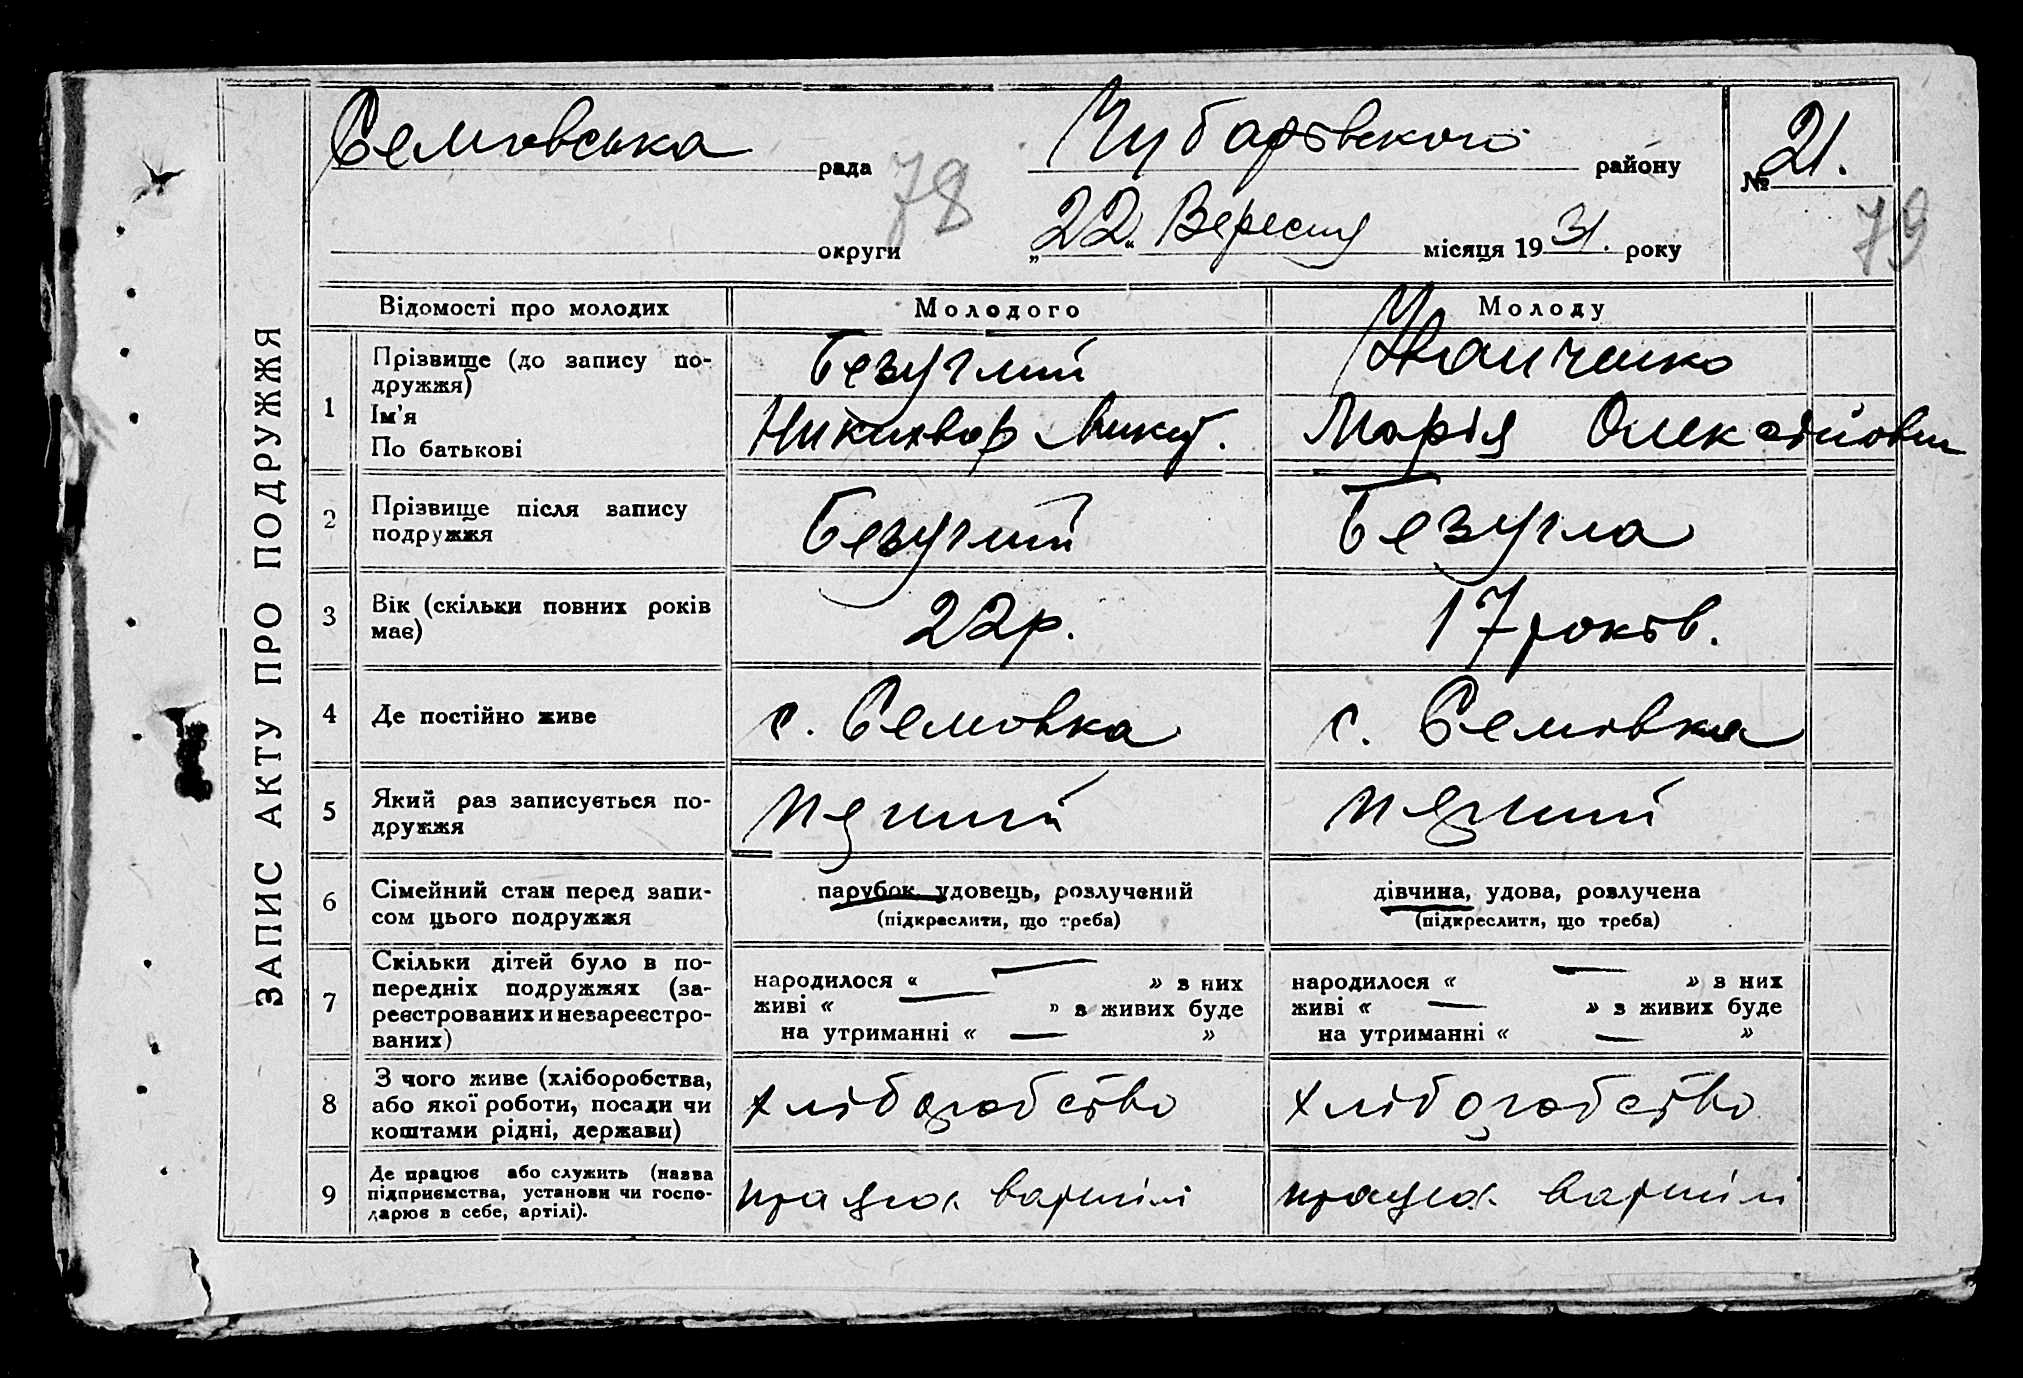 ЗАПИС АКТУ ПРО ПОДРУЖЖЯ
Семовська рада
Чубаровского району
№ 21.
78
округи
„22“ Вересня місяця 1931. року
79
Відомості про молодих
Молодого
Молоду
1
Прізвище (до запису по-
дружжя)
Ім'я
По батькові
Безуглий
Никихвор Микит.
Иванченко
Марія Олексійовна
2
Прізвище після запису
подружжя
Безуглий
Безугла
3
Вік (скільки повних років
має)
22р.
17 років.
4
Де постійно живе
с. Семовка
с. Семовка
5
Який раз записується по-
дружжя
перший
перший
6
Сімейний стан перед запи-
сом цього подружжя
парубок, удовець, розлучений
(підкреслити, що треба)
дівчина, удова, розлучена
(підкреслити, що треба)
7
Скільки дітей було в по-
передніх подружжях (за-
реєстрованих и незареєстро-
ваних)
народилося « — » з них
живі « — » з живих буде
на утриманні « — »
народилося « — » з них
живі « — » з живих буде
на утриманні « — »
8
З чого живе (хліборобства,
або якої роботи, посади чи
коштами рідні, держави)
хліборобство
хліборобство
9
Де працює або служить (назва
підприємства, установи чи госпо-
дарює в себе, артілі).
працює вартілі
працює вартілі